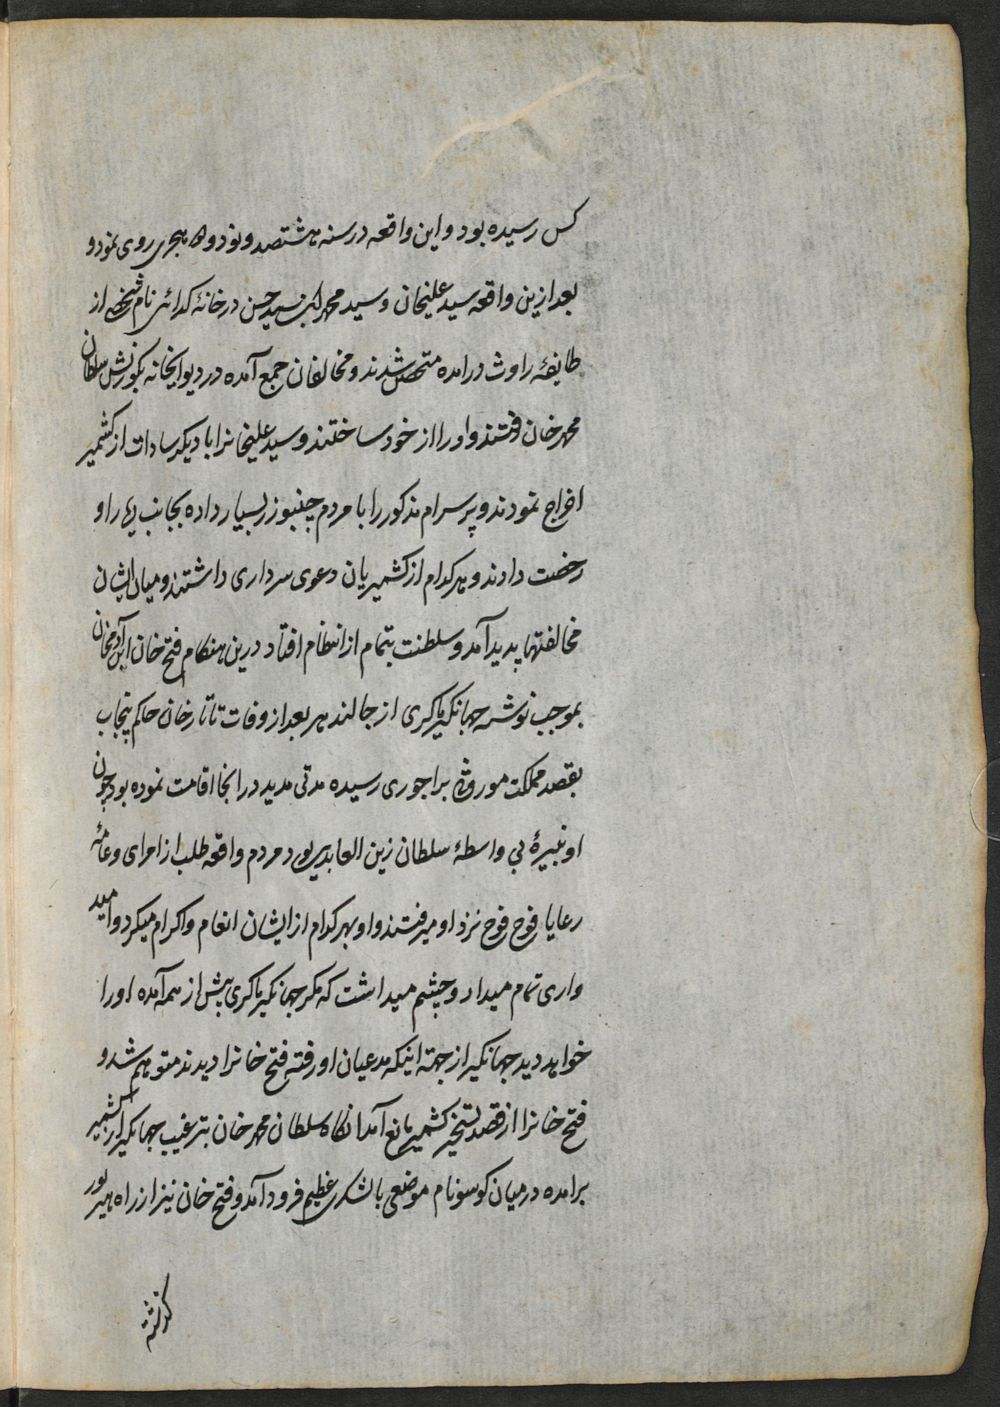 کس رسیده بود و این واقعه در سنه هشتصد و نود و هجری روی نمود و
بعد ازین واقعه سید علیخان و سید محمد ابن سید حسن در خانهٔ کدائی نام شخصی از
طایفهٔ راوث درامده متحصن شدند و مخالفان جمع آمده در دیوانخانه بکورنش سلطان
محمد خان رفتند و او را از خود ساختند و سید علیخانرا با دیکر سادات از کشمیر
اخراج نمودند و پرسرام مذکور را با مردم چنبو زر بسیار داده بجانب راو
رخصت دادند و هر کدام از کشمیریان دعوی سرداری داشتند و میان ایشان
مخالفتها پدید آمد و سلطنت بتمام از انتظام افتاد درین هنکام فتح خان ابن آدم خان
بموجب نوشته جهانکیر ماکری از جالندهر بعد از وفات تاتار خان حاکم پنجاب
بقصد مملکت موروثی براجوری رسیده مدتی مدید در انجا اقامت نموده بود چون
او نبیرهٔ بی واسطهٔ سلطان زین العابدین بود مردم واقعه طلب از امرای و عامهٔ
رعایا فوج فوج نزد او میرفتند و او بهر کدام از ایشان انعام و اکرام میکرد و امید
واری تمام میداد و چشم میداشت که مکر جهانکیر ماکری پیش از همه آمده او را
خواهد دید جهانکیر از جهته اینکه مدعیان او رفته فتح خانرا دیدند متوهم شد و
فتح خانرا از قصد تسخیر کشمیر مانع آمد انکاه سلطان محمد خان بترغیب جهانکیر از کشمیر
برامده در میان کوسو نام موضعی با لشکری عظیم فرود آمد و فتح خان نیز از راه هیرپور
کذشته